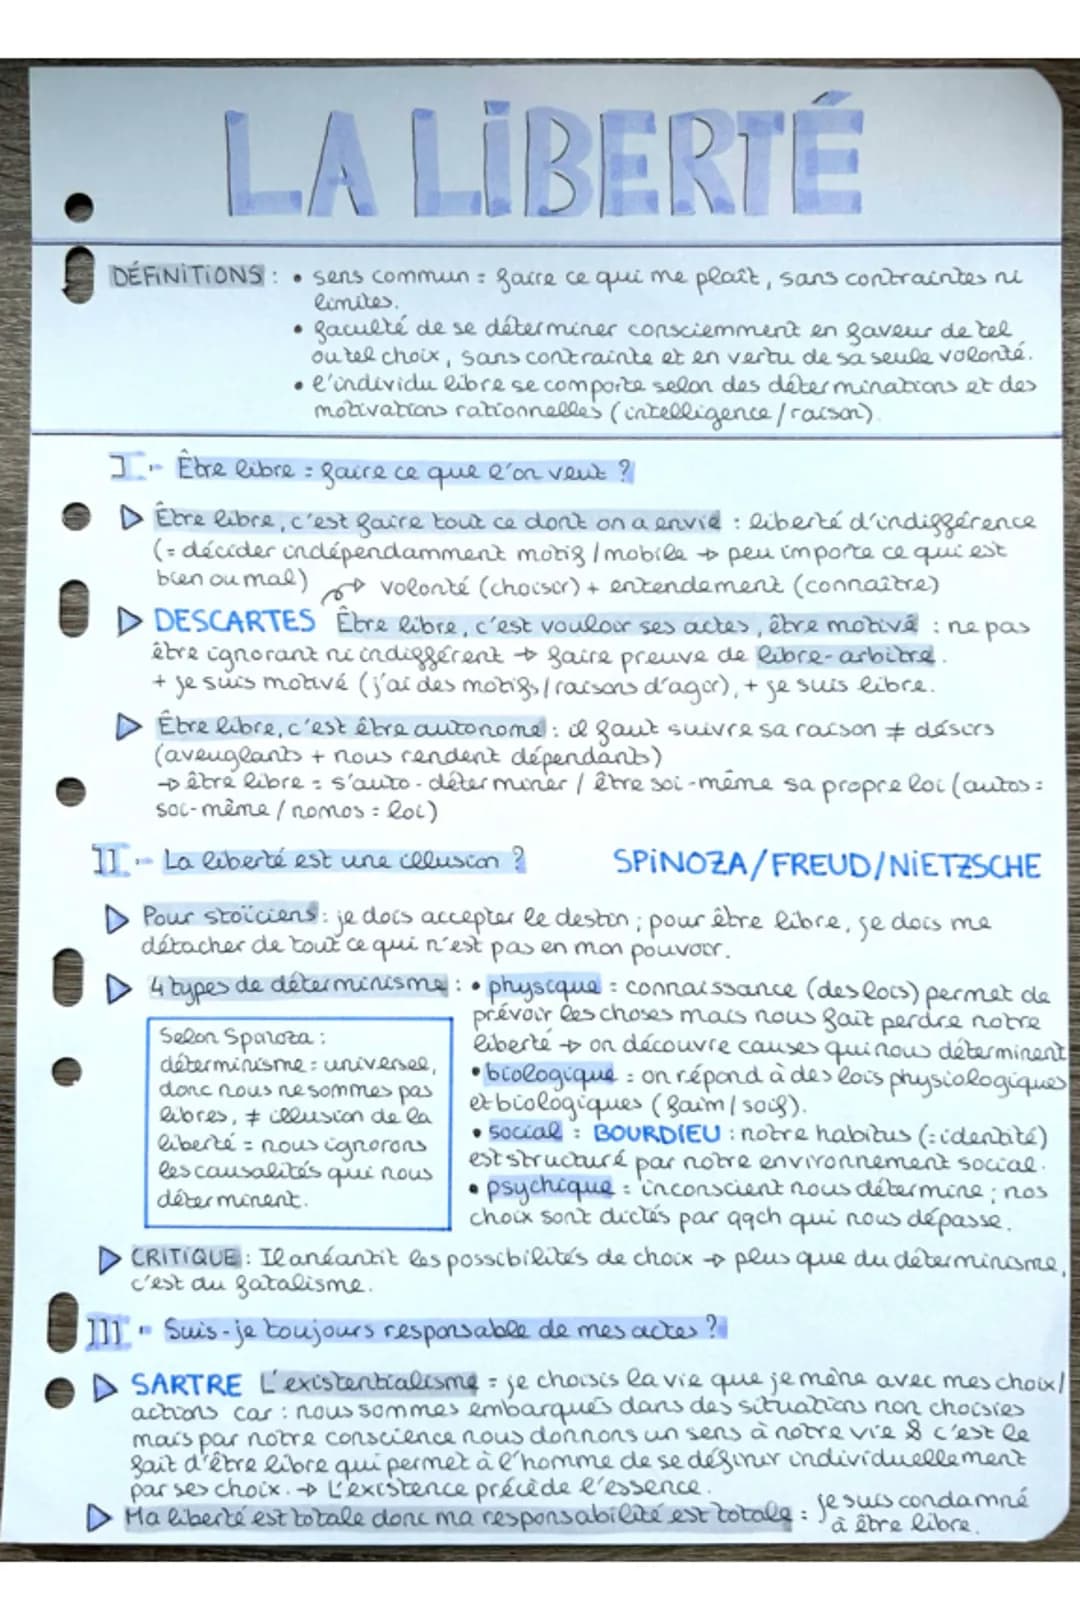 LA LIBERTÉ
DÉFINITIONS : • sens commun = faire ce qui me plaît, sans contraintes ni
limites.
• faculté de se déterminer consciemment en faveur de tel
ou tel choix, sans contrainte et en vertu de sa seule volonté.
• l'individu libre se comporte selon des déterminations et des
motivations rationnelles (intelligence/raison)
I - Être libre = faire ce que l'on veut ?
▷ Être libre, c'est faire tout ce dont on a envie : liberté d'indifférence
(= décider indépendamment motif/mobile → peu importe ce qui est
bien ou mal) → volonté (choisir) + entendement (connaître)
▷ DESCARTES Être libre, c'est vouloir ses actes, être motivé : ne pas
être ignorant ni indifférent → faire preuve de libre-arbitre.
+ je suis motivé (j'ai des motifs/raisons d'agir), + je suis libre.
▷ Être libre, c'est être autonome : il faut suivre sa raison ≠ désirs
(aveuglants + nous rendent dépendants)
→ être libre = s'auto-déterminer / être soi-même sa propre loi (autos =
soi-même / nomos = loi)
II - La liberté est une illusion ? SPINOZA/FREUD/NIETZSCHE
▷ Pour stoïciens : je dois accepter le destin ; pour être libre, je dois me
détacher de tout ce qui n'est pas en mon pouvoir.
▷ 4 types de déterminisme : • physique = connaissance (des lois) permet de
prévoir les choses mais nous fait perdre notre
liberté → on découvre causes qui nous déterminent
• biologique = on répond à des lois physiologiques
et biologiques (faim/soif).
• social : BOURDIEU : notre habitus (=identité)
est structuré par notre environnement social.
• psychique = inconscient nous détermine ; nos
choix sont dictés par qqch qui nous dépasse.
Selon Spinoza :
déterminisme = universel,
donc nous ne sommes pas
libres, ≠ illusion de la
liberté = nous ignorons
les causalités qui nous
déterminent.
▷ CRITIQUE : Il anéantit les possibilités de choix → plus que du déterminisme,
c'est du fatalisme.
III - Suis-je toujours responsable de mes actes ?
▷ SARTRE L'existentialisme = je choisis la vie que je mène avec mes choix/
actions car : nous sommes embarqués dans des situations non choisies
mais par notre conscience nous donnons un sens à notre vie & c'est le
fait d'être libre qui permet à l'homme de se définir individuellement
par ses choix. → L'existence précède l'essence.
▷ Ma liberté est totale donc ma responsabilité est totale : je suis condamné
à être libre.